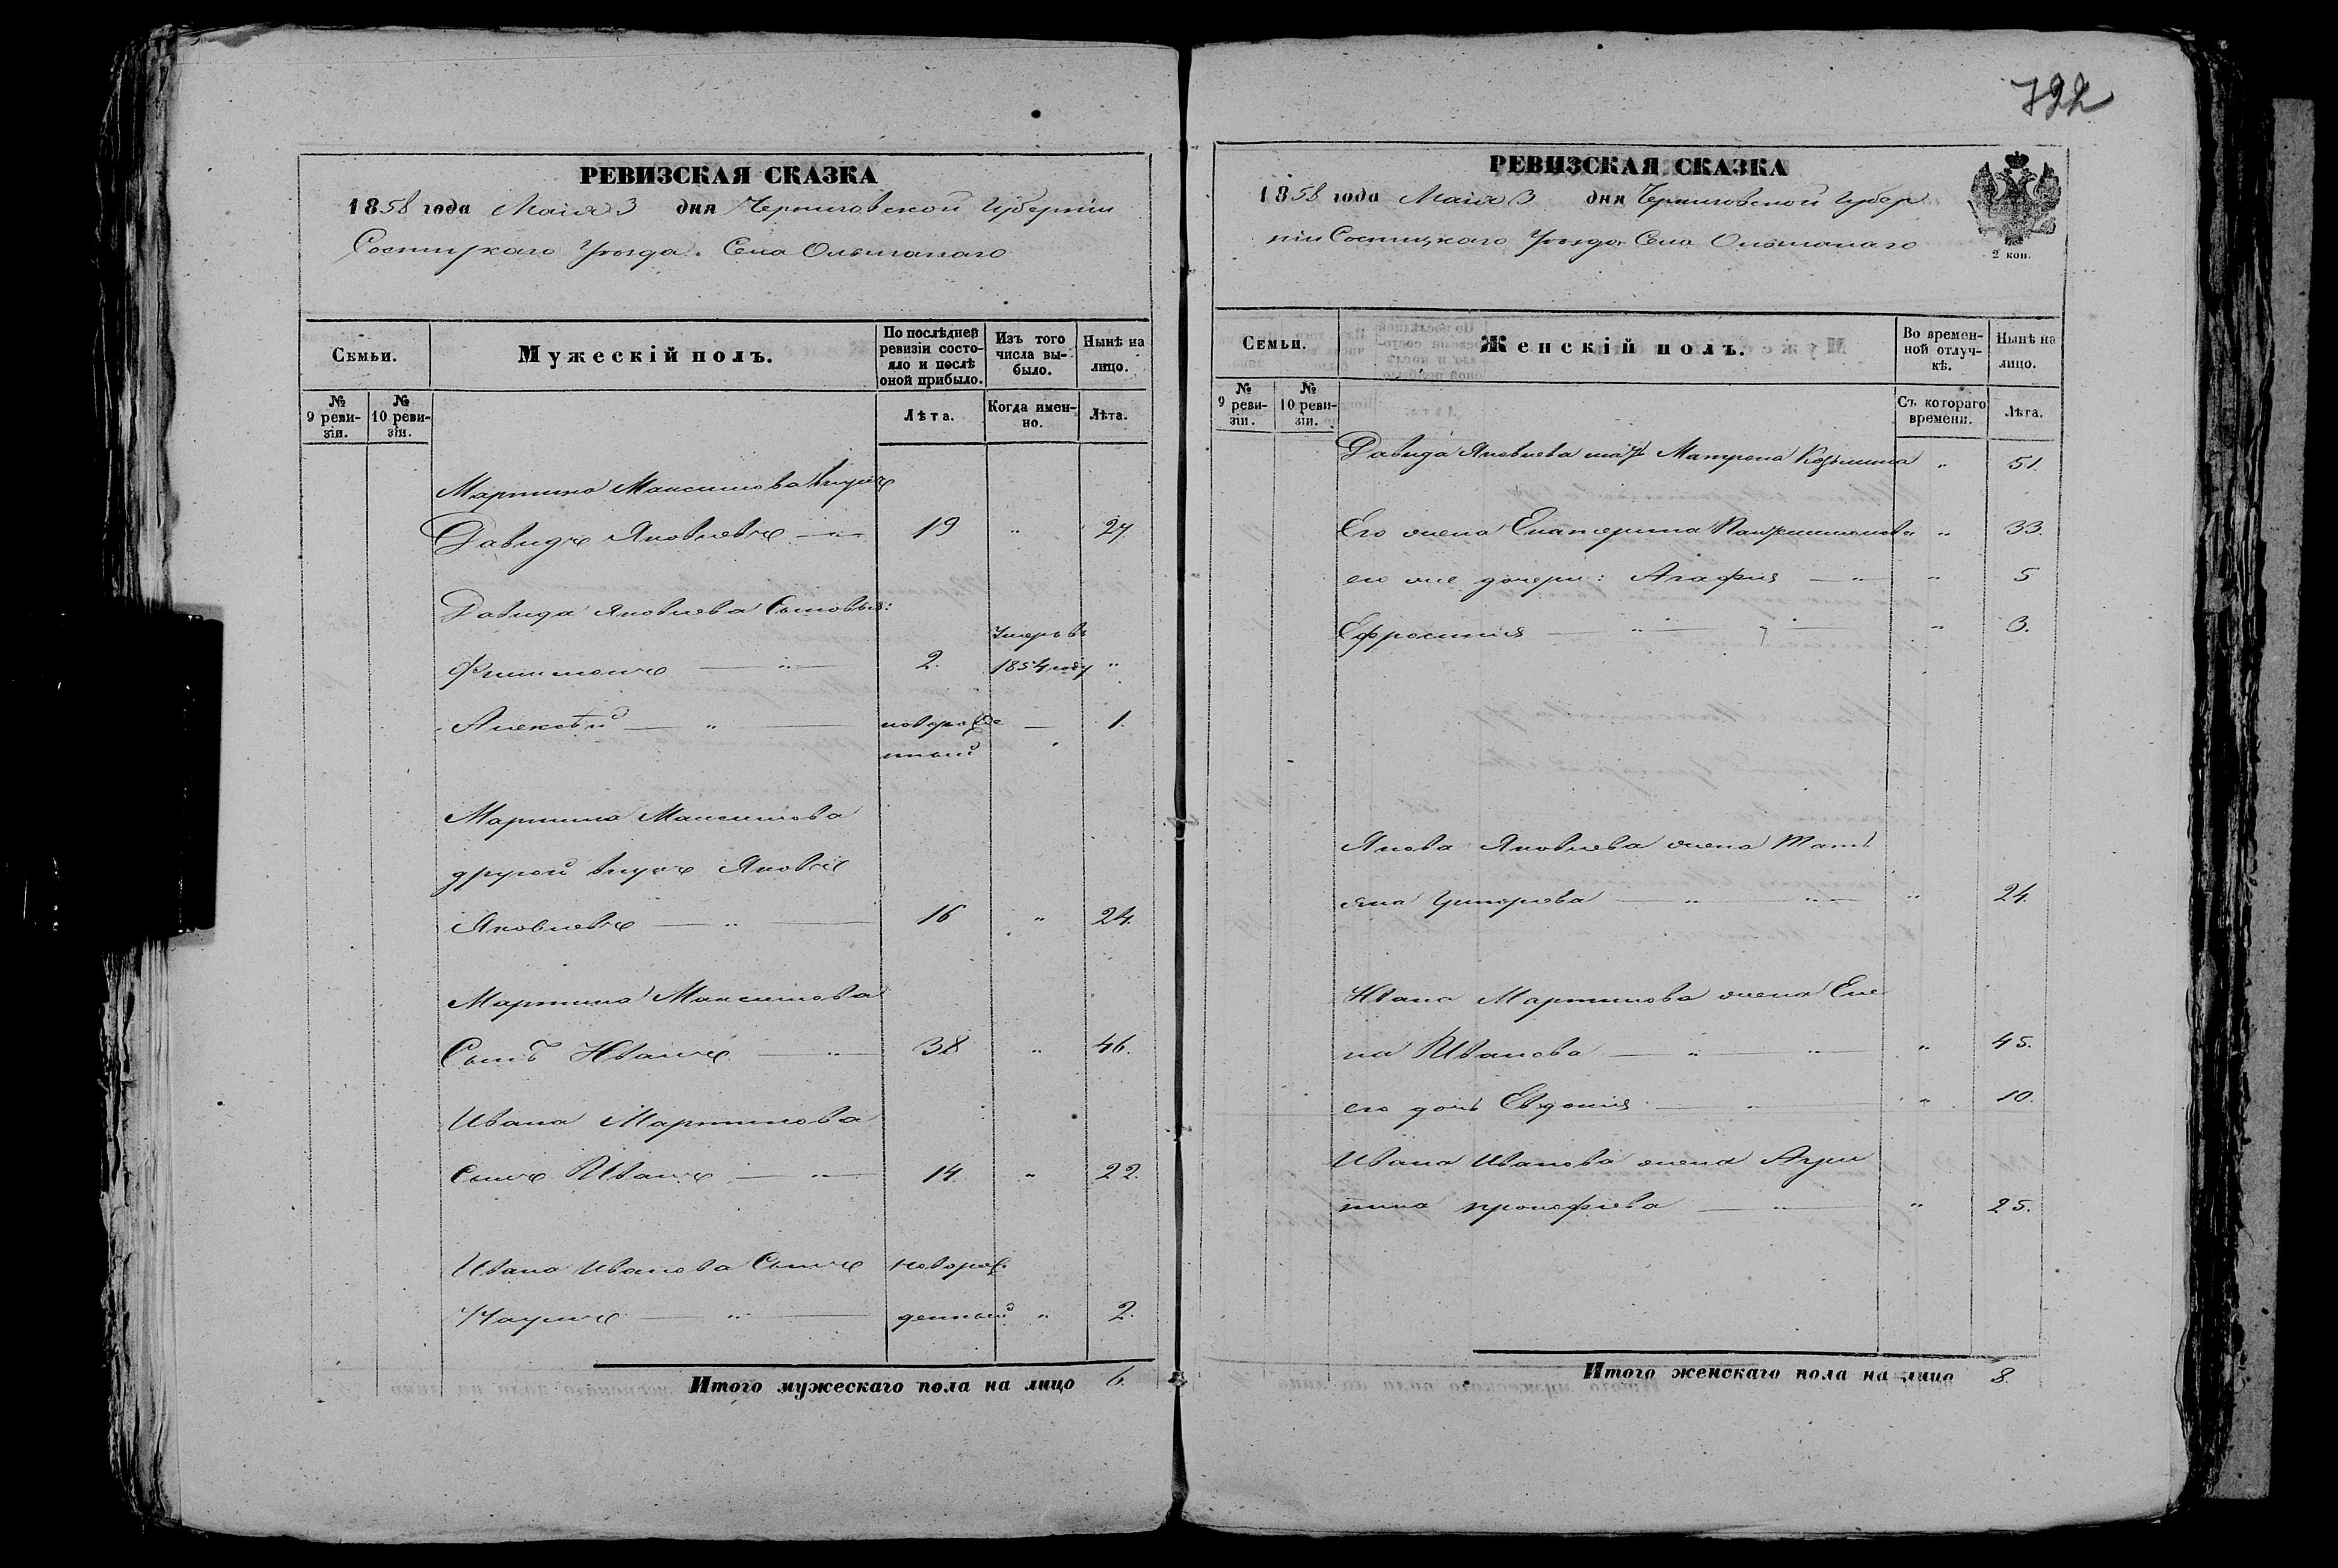 РЕВИЗСКАЯ СКАЗКА
1858 года Маія 3 дня Черниговской Губерніи
Сосницкаго Уѣзда. Села Ольшанаго
Семьи.
Мужескій полъ.
По послѣдней ревизіи состояло и послѣ оной прибыло.
Изъ того числа выбыло.
Нынѣ на лицо.
№ 9 ревизіи.
№ 10 ревизіи.
Лѣта.
Когда именно.
Лѣта.
Мартина Максимова внукъ
Давидъ Яковлевъ — " — 19 " 27.
Давида Яковлева Сыновья:
Умеръ въ
Филимонъ — " — 2. 1854 году "
Алексѣй — " — новорожде — 1.
нный "
Мартина Максимова
другой внукъ Яковъ
Яковлевъ — " — 16 " 24.
Мартина Максимова
Сынъ Иванъ — " — 38 " 46.
Ивана Мартинова
Сынъ Иванъ — " — 14. " 22.
Ивана Иванова Сынъ новорож
Наумъ — " — денный " 2.
Итого мужескаго пола на лицо 6.
722
РЕВИЗСКАЯ СКАЗКА
1858 года Маія 3 дня Черниговской Губер
ніи Сосницкаго Уѣзда Села Ольшанаго
2 коп.
Семьи.
Женскій полъ.
Во временной отлучкѣ.
Нынѣ на лицо.
№ 9 ревизіи.
№ 10 ревизіи.
Съ котораго времени.
Лѣта.
Давида Яковлева мать Матрона " 51.
Его жена Екатерина " 33.
его же дочери: Агафія — " " 5
Ефросинія — " — " 3.
Якова Яковлева жена Тать
яна — " — " — " 24.
Ивана Мартинова жена Еле
на Иванова — " — " — " 45.
его дочь Евдокія — " — " 10.
Ивана Иванова жена Агри
пина Прокофіева — " — " 25.
Итого женскаго пола на лицо 8.